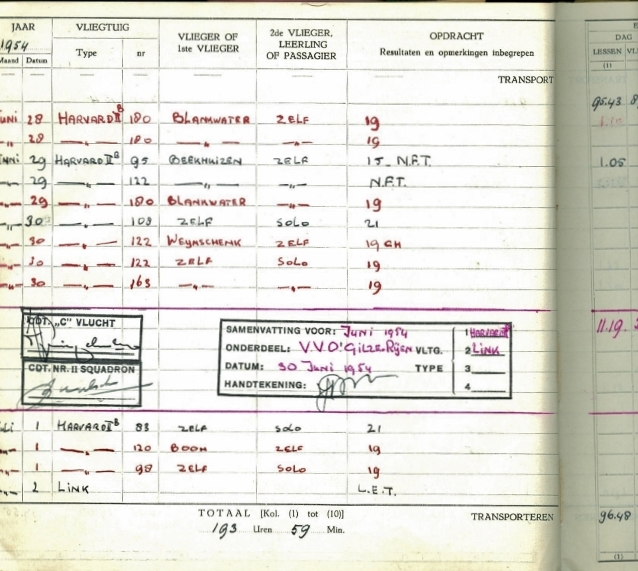 JAAR VLIEGTUIG VLIEGER OF 1ste VLIEGER 2de VLIEGER, LEERLING OF PASSAGIER OPDRACHT Resultaten en opmerkingen inbegrepen DAG
1954
Maand Datum Type nr LESSEN
(1)
TRANSPORT
95.43
uni 28 HARVARD IIB 180 BLANKWATER ZELF 19
-„- 28 -„- 180 -„- -„- 19
uni 29 HARVARD IIB 95 BEEKHUIZEN ZELF 15 - N.F.T. 1.05
-„- 29 -„- 122 -„- -„- N.F.T.
-„- 29 -„- 180 BLANKWATER -„- 19
-„- 30 -„- 109 ZELF SOLO 21
-„- 30 -„- 122 WEYNSCHENK ZELF 19 GH
-„- 30 -„- 122 ZELF SOLO 19
-„- 30 -„- 163 -„- -„- 19
CDT. „C" VLUCHT
CDT. NR. II SQUADRON
SAMENVATTING VOOR: Juni 1954 1 HARVARD IIB
ONDERDEEL: V.V.O. Gilze-Rijen VLTG. 2 LINK
DATUM: 30 Juni 1954 TYPE 3
HANDTEKENING: 4
11.19
li 1 HARVARD IIB 83 ZELF SOLO 21
-„- 1 -„- 120 BOOM ZELF 19
-„- 1 -„- 98 ZELF SOLO 19
-„- 2 LINK L.E.T.
TOTAAL [Kol. (1) tot (10)] TRANSPORTEREN 96.48
193 Uren 59 Min.
(1)